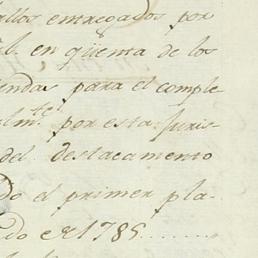 allos entregados por
il. en qüenta de los
iendas para el comple
alm.te por esta Juris-
del destacamento
do el primer pla-
ado de 1785